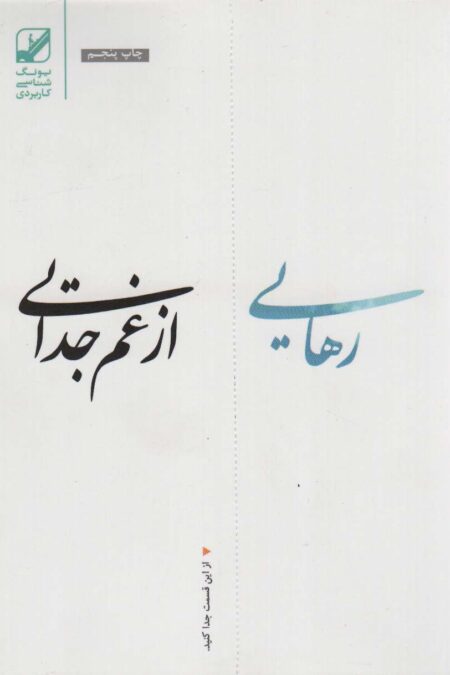 یونگ
شناسی
کاربردی
چاپ پنجم
رهایی
از غم جدایی
از این قسمت جدا کنید.